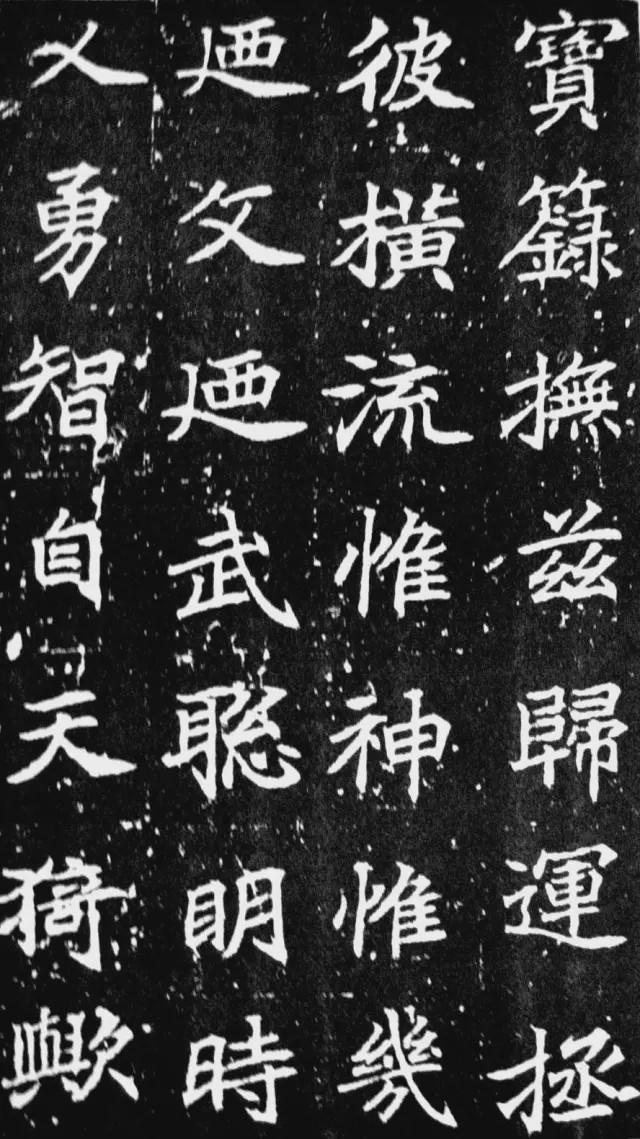 寶籙撫茲歸運拯
彼橫流惟神惟幾
廼文廼武聡明時
乂勇智自天猗歟